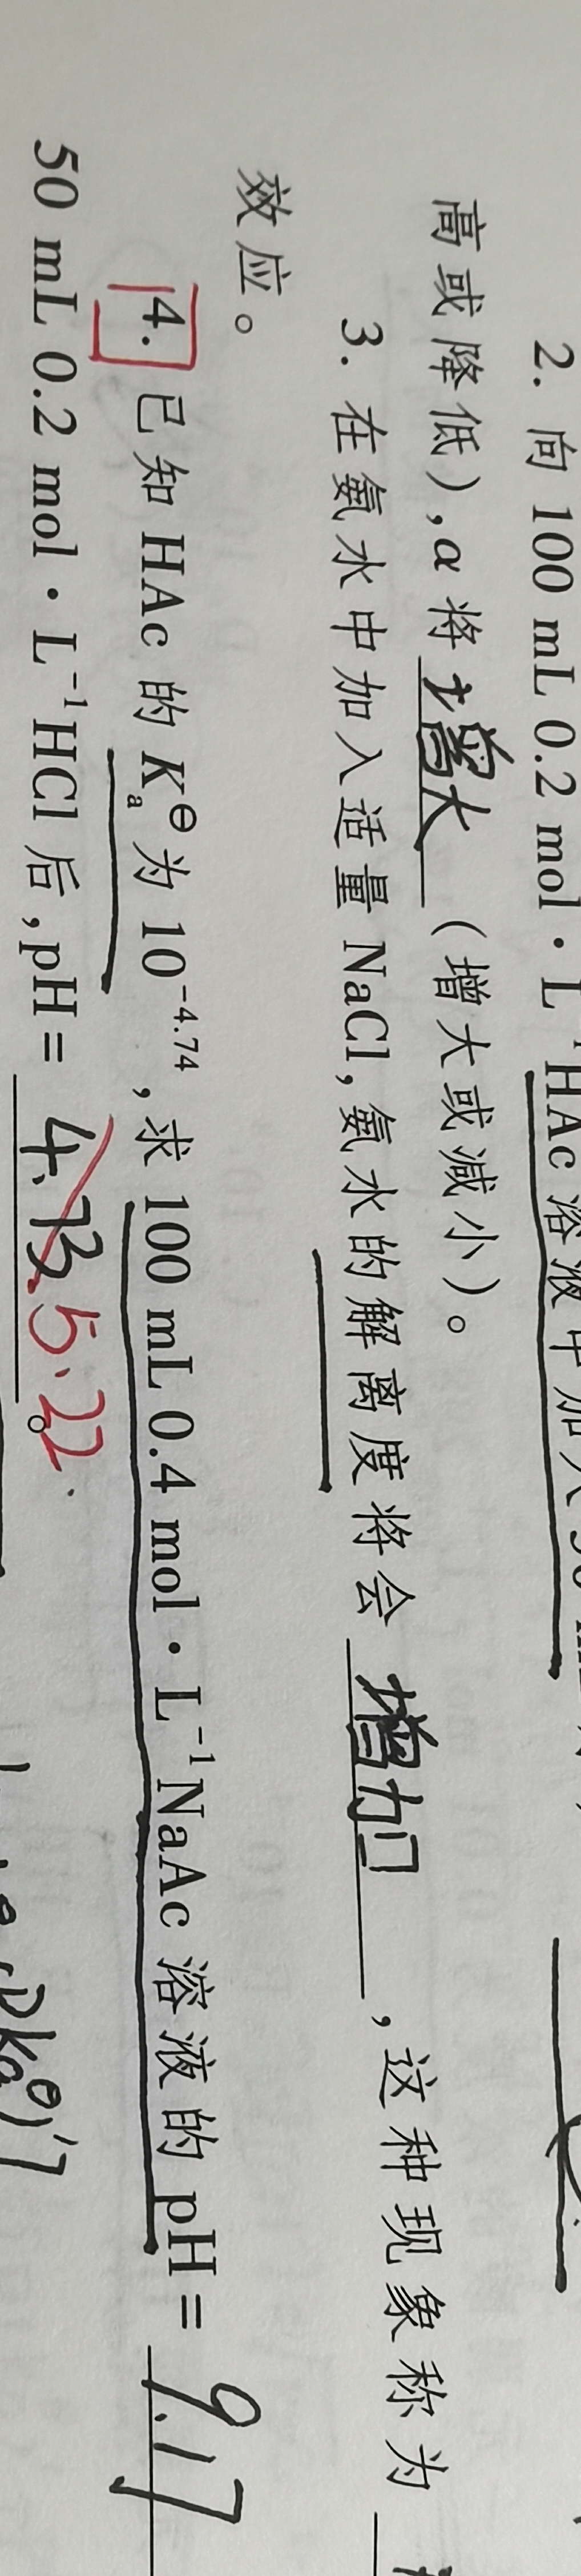 2. 向 100 mL 0.2 mol·L⁻¹HAc 溶液中加入 50
高或降低),α 将 增大 (增大或减小)。
3. 在氨水中加入适量 NaCl,氨水的解离度将会 增加 ,这种现象称为
效应。
4. 已知 HAc 的 Kₐ^⊖ 为 10⁻⁴·⁷⁴,求 100 mL 0.4 mol·L⁻¹NaAc 溶液的 pH= 9.17
50 mL 0.2 mol·L⁻¹HCl 后,pH= 4.73 5.22 。